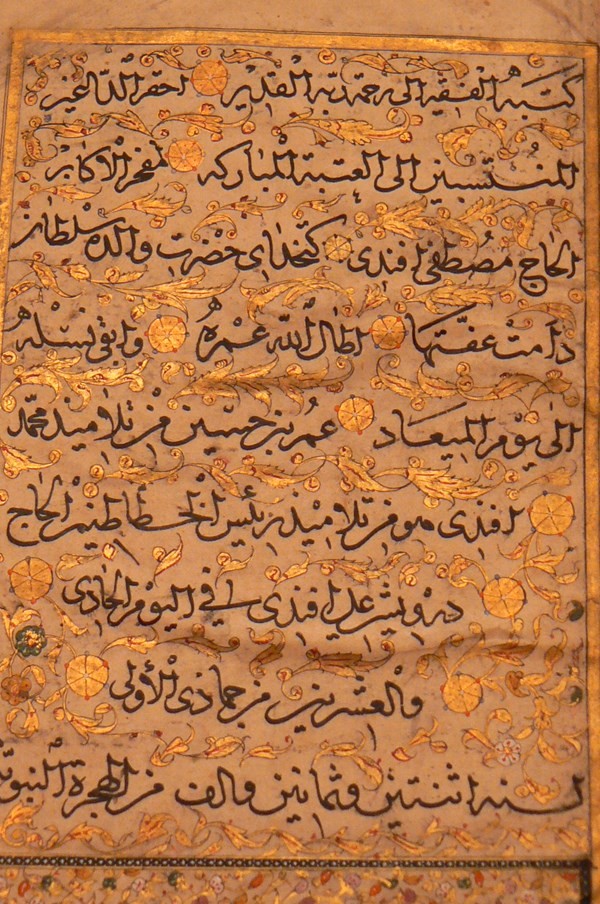 كتبه الفقير الى رحمة ربه القدير احقر الداعين
المنتسبين الى العتبة المباركه مفخر الاكابر
الحاج مصطفى افندى كتخداى حضرت والده سلطان
دامت عفتها اطال الله عمره وابقى نسله
الى يوم الميعاد عمر بن حسين من تلاميذ محمد
افندى من تلاميذ رئيس الخطاطين الحاج
درويش على افندى في اليوم الحادى
والعشرين من جماذى الأولى
لسنه اثنتين وثمانين والف من الهجرة النبوية